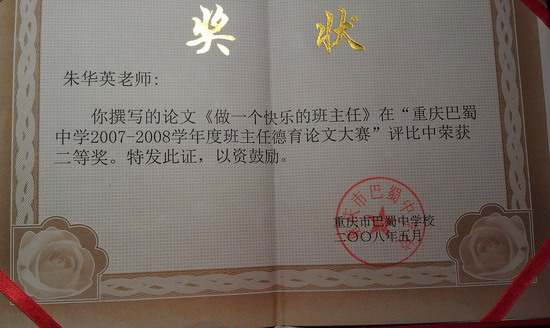 奖 状
朱华英老师:
你撰写的论文《做一个快乐的班主任》在“重庆巴蜀
中学2007-2008学年度班主任德育论文大赛”评比中荣获
二等奖。特发此证，以资鼓励。
重庆市巴蜀中学校
二〇〇八年五月
重庆市巴蜀中学校